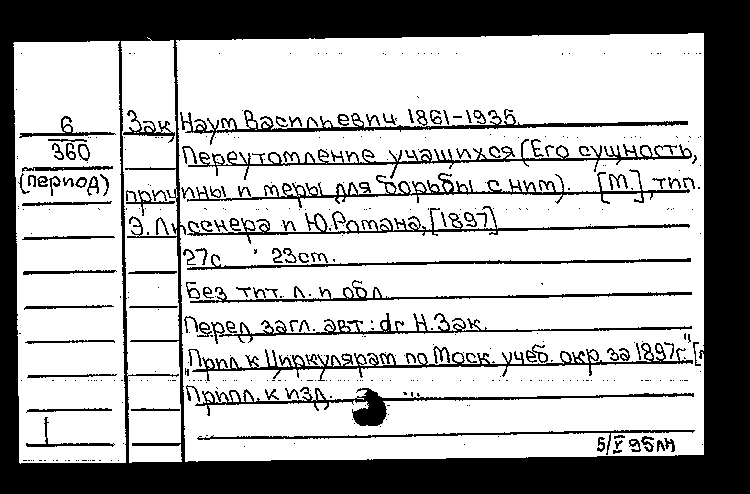 6 Зак, Наум Васильевич, 1861-1935.
360 Переутомление учащихся (Его сущность,
(период) причины и меры для борьбы с ним). [М.], тип.
Э. Лисснера и Ю. Романа, [1897]
27с 23cm.
Без тит. л. и обл.
Перед загл. авт: dr Н. Зак.
"Прил. к Циркулярам по Моск. учеб. окр. за 1897г." [
Припл. к изд.
5/V 95